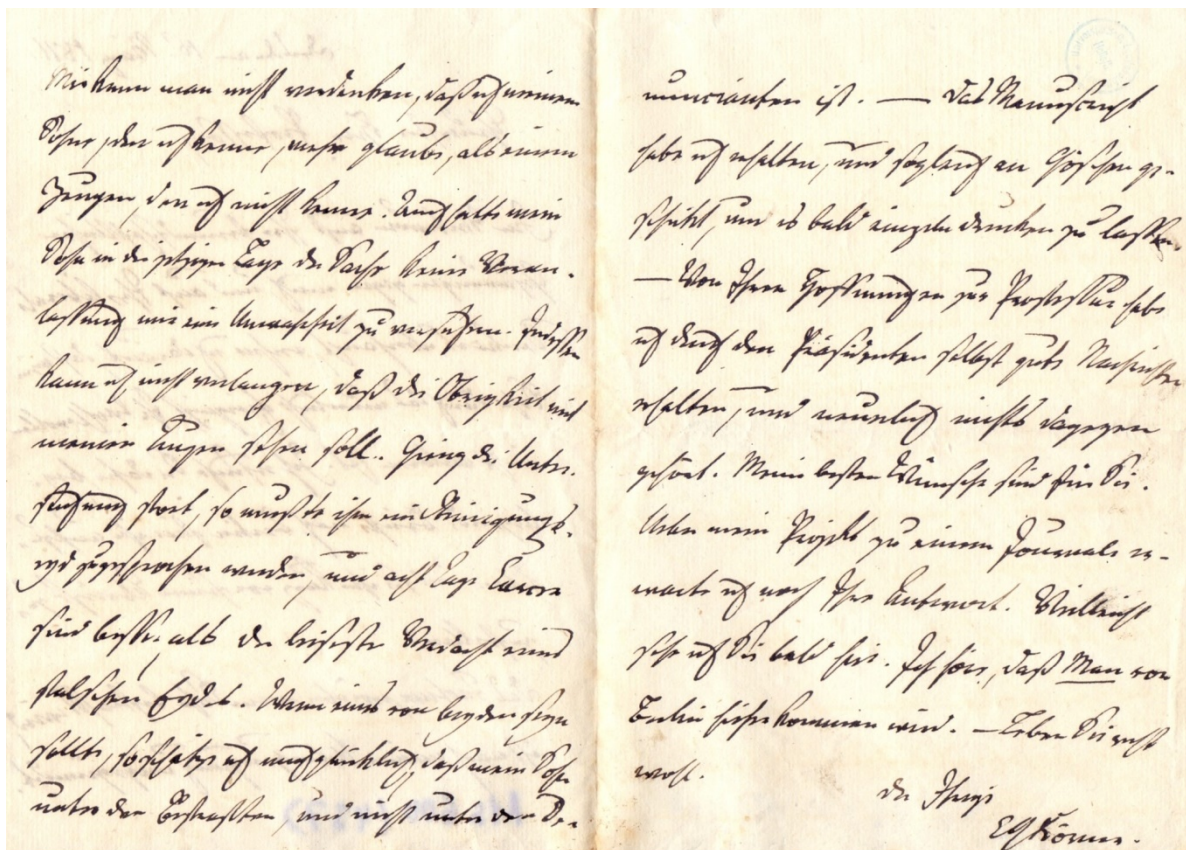 Mir kann man nicht verdenken, daß ich meinem
Sohne, den ich kenne, mehr glaube, als einem
Zeugen, den ich nicht kenne. Auch hatte mein
Sohn in der jetzigen Lage der Sache keine Veran-
lassung mir eine Unwahrheit zu versichern. Indessen
kann ich nicht verlangen, daß die Obrigkeit mit
meinen Augen sehen soll. Gieng die Unter-
suchung fort, so mußte ihm ein Reinigungs-
eyd zugesprochen werden, und acht Tage Carcer
sind besser als der leiseste Verdacht eines
falschen Eydes. Wenn eins von beyden seyn
sollte, so schätze ich mich glücklich, daß mein Sohn
unter den Bestraften, und nicht unter den De-
nuncianten ist. — Das Manuscript
habe ich erhalten, und sogleich an Göschen ge-
schickt, um es bald eingeln drucken zu lassen.
— Von Ihren Hoffnungen zur Professur habe
ich durch den Präsidenten selbst gute Nachrichten
erhalten, und neuerlich nichts dagegen
gehört. Meine besten Wünsche sind für Sie.
Ueber mein Projekt zu einem Journale er-
warte ich noch Ihre Antwort. Vielleicht
sehe ich Sie bald hier. Ich höre, daß Man von
Berlin hieher kommen wird. — Leben Sie recht
wohl.
der Ihrige
CGKörner.